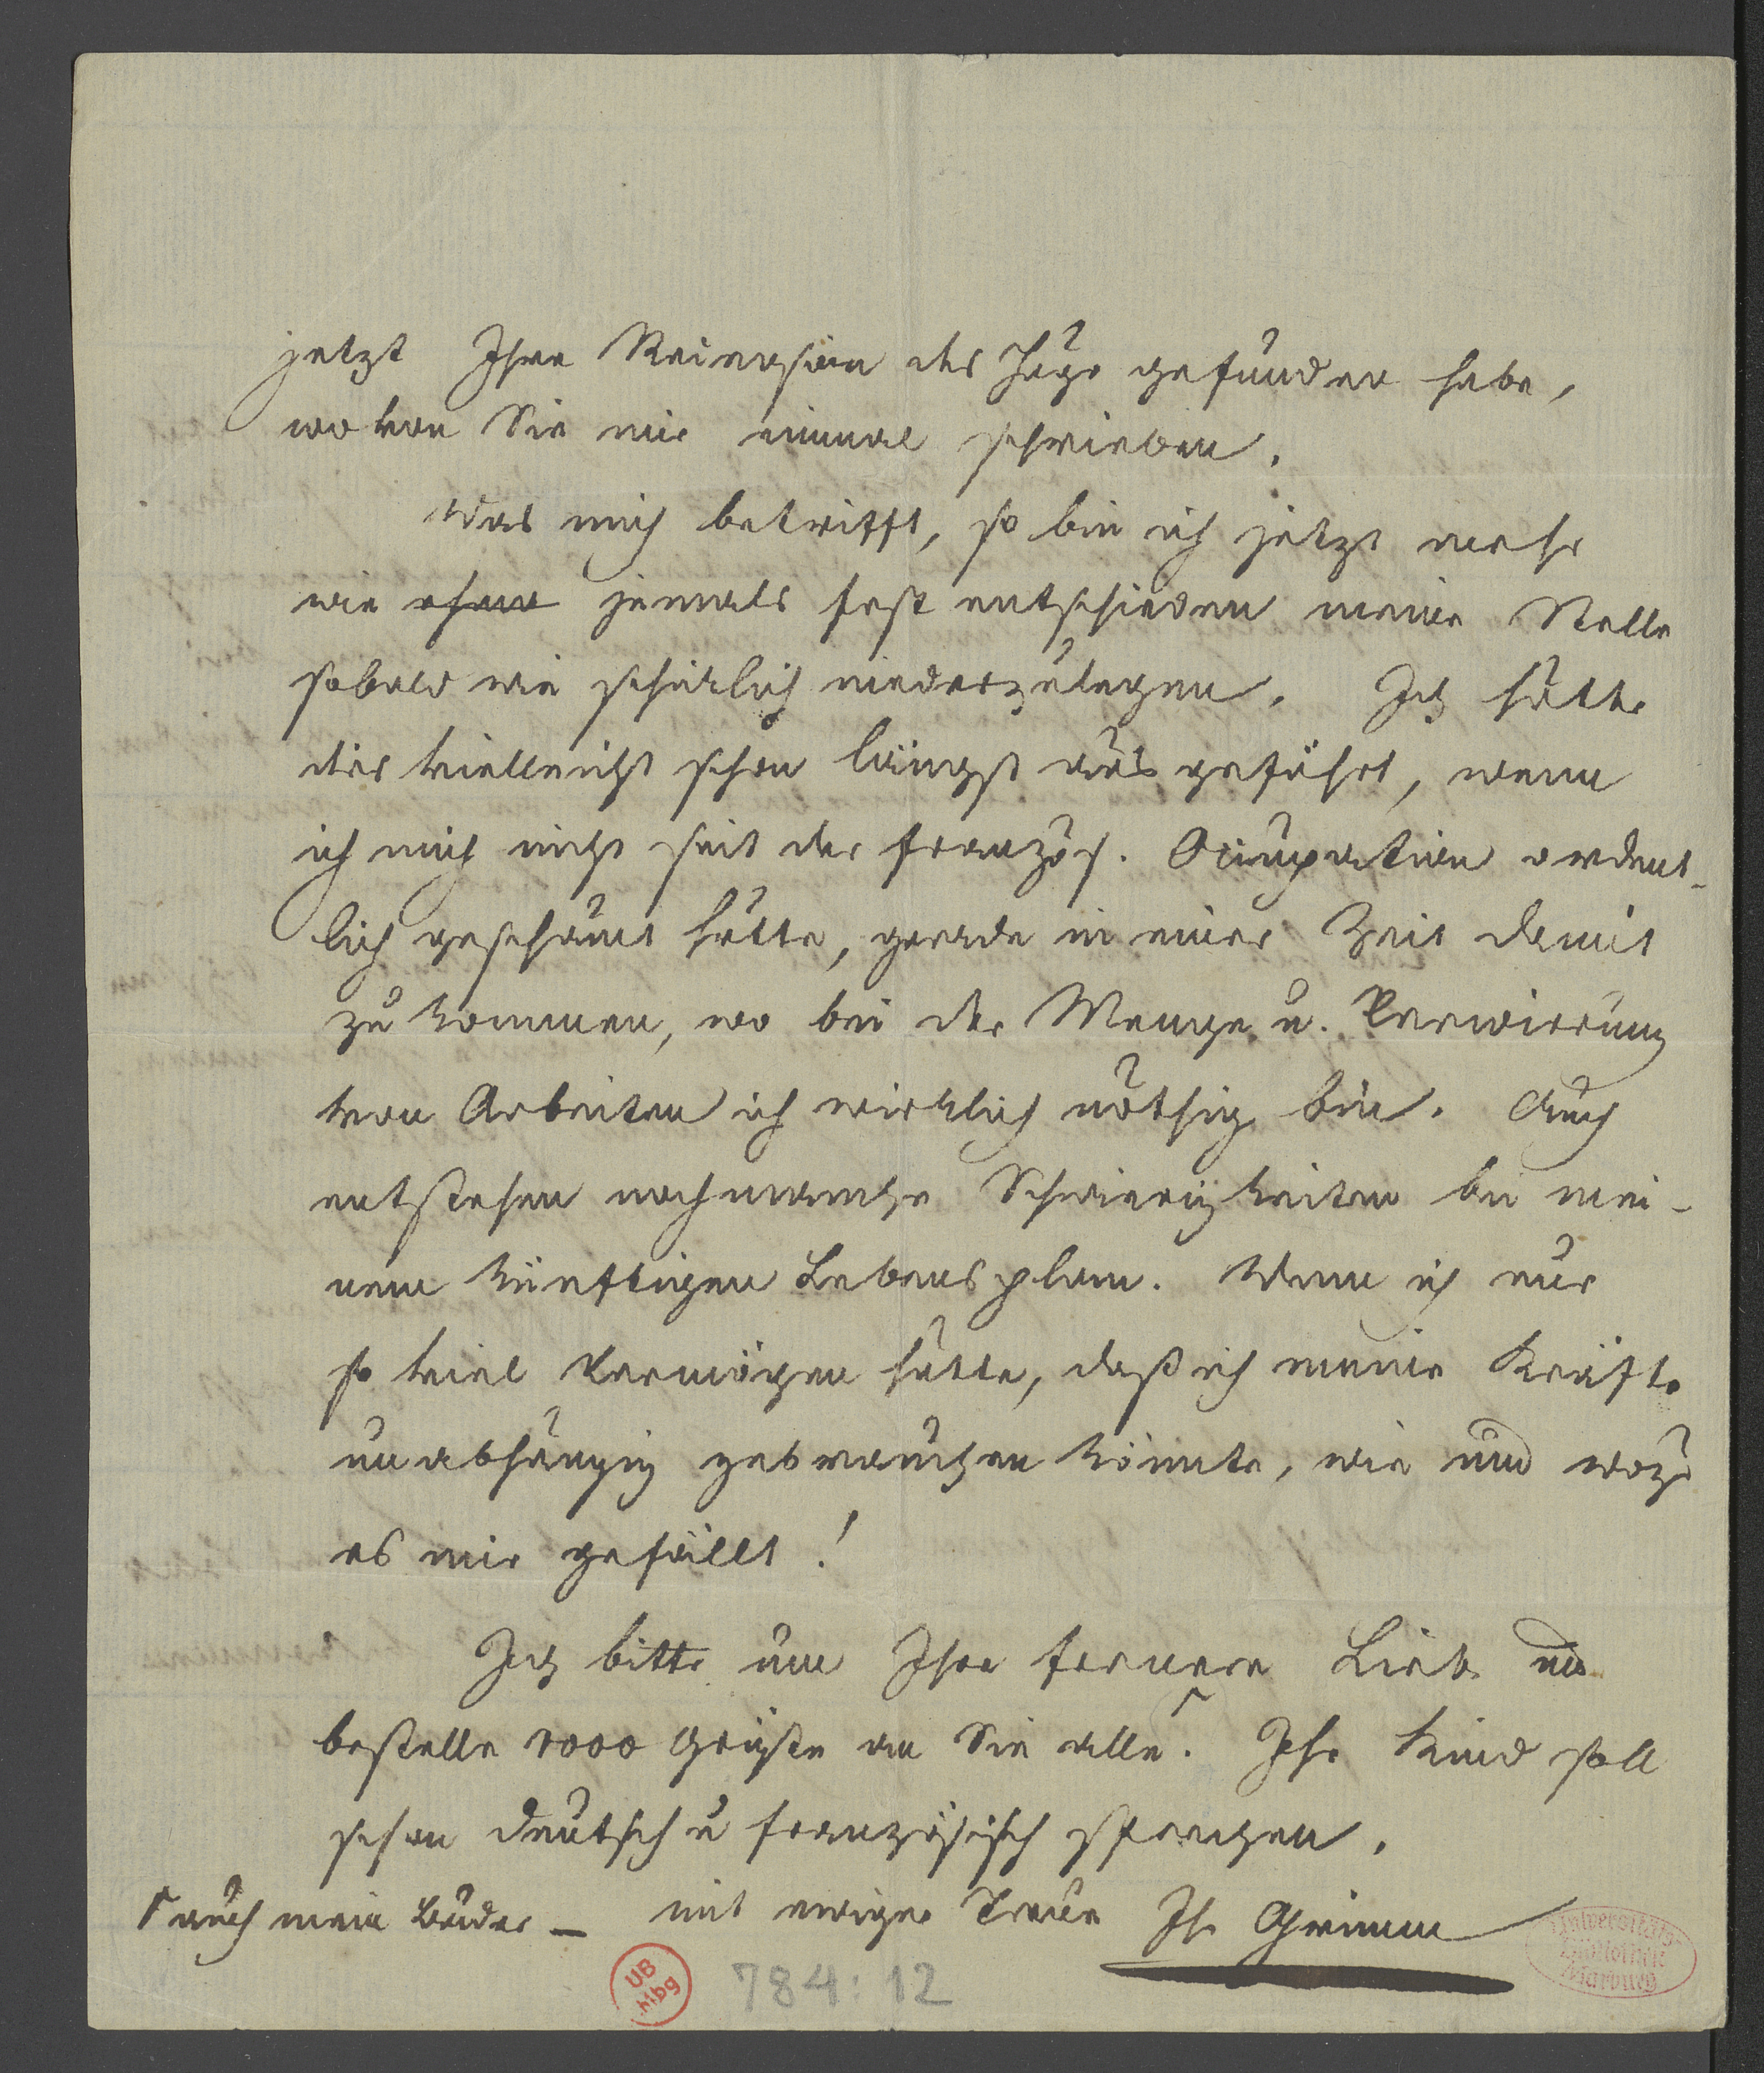 jetzt Ihre Recension des Hugo gefunden habe,
wovon Sie mir einmal schrieben.
Was mich betrifft, so bin ich jetzt mehr
wie jemals fest entschieden meine Stelle
sobald wie schicklich niederzulegen. Ich hätte
dies vielleicht schon längst ausgeführt, wenn
ich mich nicht seit der französ. Occupation ordent-
lich geschämt hätte, gerade in einer Zeit damit
zu kommen, wo bei der Menge u. Verwirrung
von Arbeiten ich wirklich nöthig bin. Auch
entstehen noch manche Schwierigkeiten bei mei-
nem künftigen Lebensplan. Wenn ich nur
so viel Vermögen hätte, daß ich meine Kräfte
unabhängig gebrauchen könnte, wie und wozu
es mir gefällt!
Ich bitte um Ihre fernere Liebe und
bestelle 1000 Grüße an Sie alle. Ihr Kind soll
schon deutsch u französisch sprechen.
auch mein Bruder — mit ewiger Treue Ihr Grimm
UB Mbg 784:12
Universitäts Bibliothek Marburg